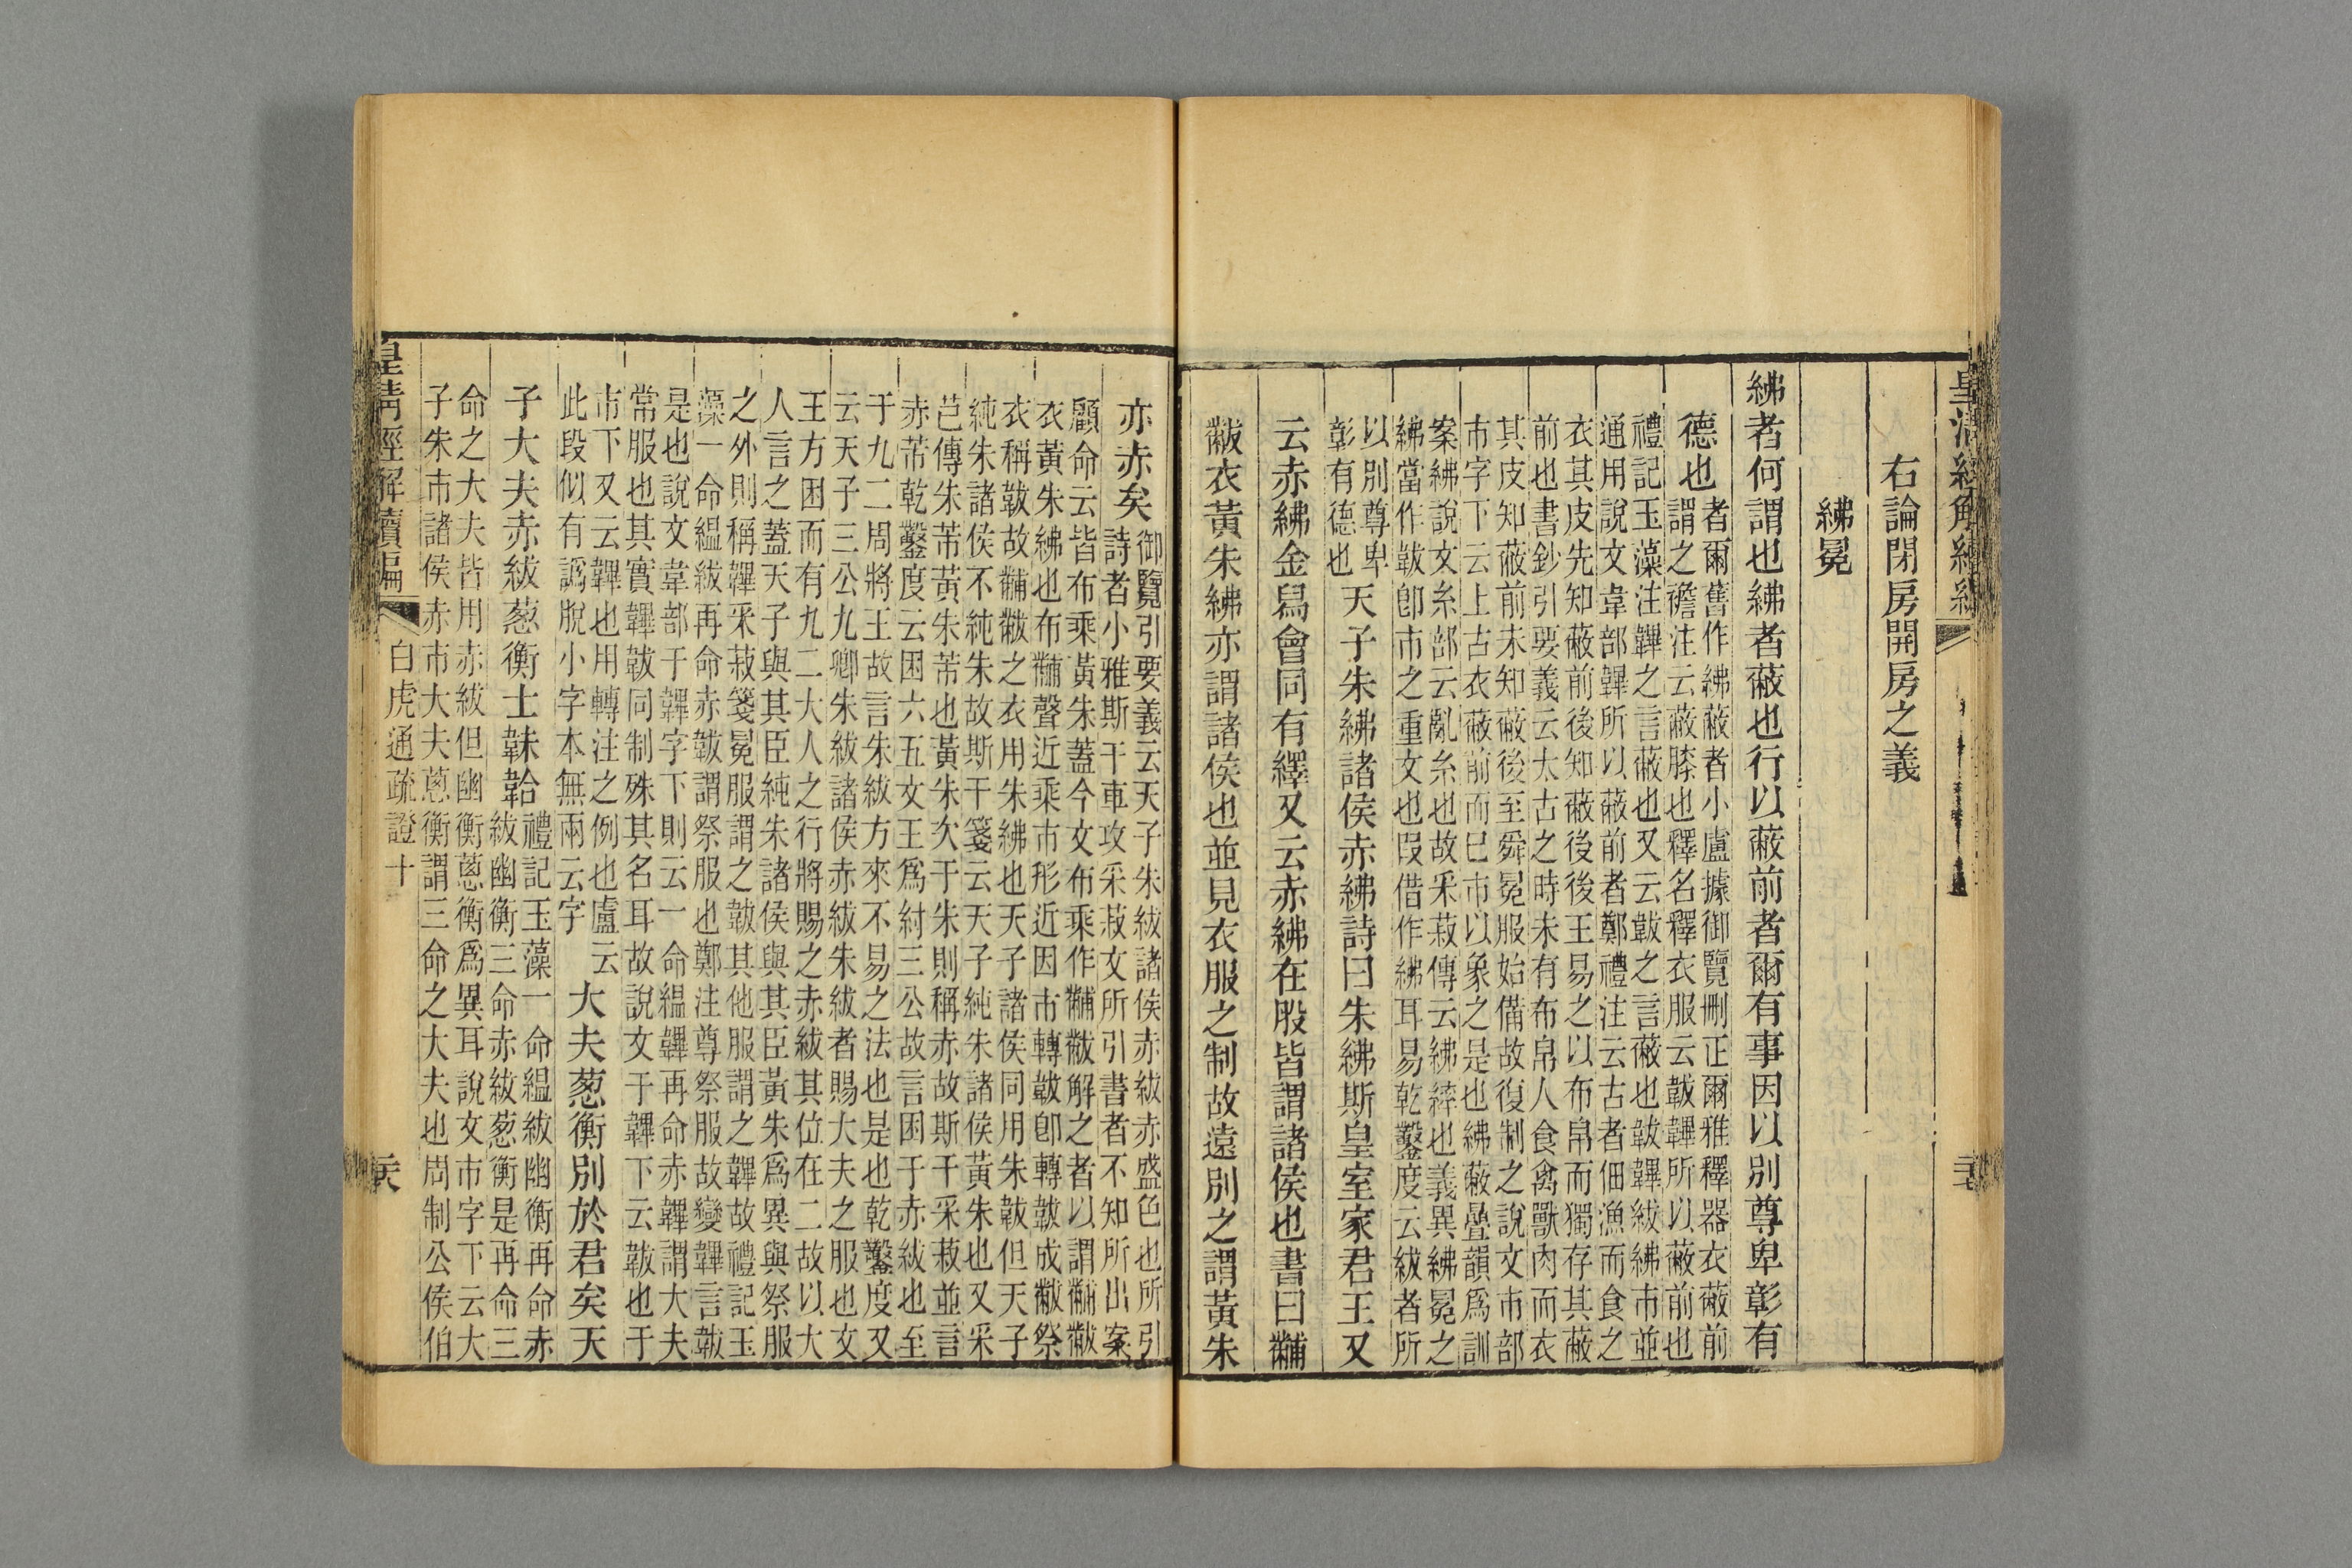 皇清經解續編
右論閉房開房之義
紼冕
紼者何謂也紼者蔽也行以蔽前者爾有事因以別尊卑彰有
德也
者爾舊作紼蔽者小盧據御覽刪正爾雅釋器衣蔽前
謂之襜注云蔽膝也釋名釋衣服云韍韠所以蔽前也
禮記玉藻注韠之言蔽也又云韍之言蔽也韍韠紱紼巿並
通用說文韋部韠所以蔽前者鄭禮注云古者佃漁而食之
衣其皮先知蔽前後知蔽後後王易之以布帛而獨存其蔽
前也書鈔引要義云太古之時未有布帛人食禽獸肉而衣
其皮知蔽前未知蔽後至舜冕服始備故復制之說文巿部
巿字下云上古衣蔽前而已巿以象之是也紼蔽疊韻爲訓
案紼說文糸部云亂糸也故采菽傳云紼繂也義異紼冕之
紼當作韍卽巿之重文也叚借作紼耳易乾鑿度云紱者所
以別尊卑
彰有德也
天子朱紼諸侯赤紼詩曰朱紼斯皇室家君王又
云赤紼金舄會同有繹又云赤紼在股皆謂諸侯也書曰黼
黻衣黃朱紼亦謂諸侯也並見衣服之制故遠別之謂黃朱
亦赤矣
御覽引要義云天子朱紱諸侯赤紱赤盛色也所引
詩者小雅斯干車攻采菽文所引書者不知所出案
顧命云皆布乘黃朱蓋今文布乘作黼黻解之者以謂黼黻
衣黃朱紼也布黼聲近乘巿形近因巿轉韍卽轉韍成黻祭
衣稱韍故黼黻之衣用朱紼也天子諸侯同用朱韍但天子
純朱諸侯不純朱故斯干箋云天子純朱諸侯黃朱也又采
芑傳朱芾黃朱芾也黃朱次于朱則稱赤故斯干采菽並言
赤芾乾鑿度云困六五文王爲紂三公故言困于赤紱也至
于九二周將王故言朱紱方來不易之法也是也乾鑿度又
云天子三公九卿朱紱諸侯赤紱朱紱者賜大夫之服也文
王方困而有九二大人之行將賜之赤紱其位在二故以大
人言之蓋天子與其臣純朱諸侯與其臣黃朱爲異與祭服
之外則稱韠采菽箋冕服謂之韍其他服謂之韠故禮記玉
藻一命縕紱再命赤韍謂祭服也鄭注尊祭服故變韠言韍
是也說文韋部于韠字下則云一命縕韠再命赤韠謂大夫
常服也其實韠韍同制殊其名耳故說文于韠下云韍也于
巿下又云韠也用轉注之例也盧云
此段似有譌脫小字本無兩云字
大夫葱衡別於君矣天
子大夫赤紱葱衡士韎韐
禮記玉藻一命縕紱幽衡再命赤
紱幽衡三命赤紱葱衡是再命三
命之大夫皆用赤紱但幽衡蔥衡爲異耳說文巿字下云大
子朱巿諸侯赤巿大夫蔥衡謂三命之大夫也周制公侯伯
皇淸經解續編
白虎通疏證十